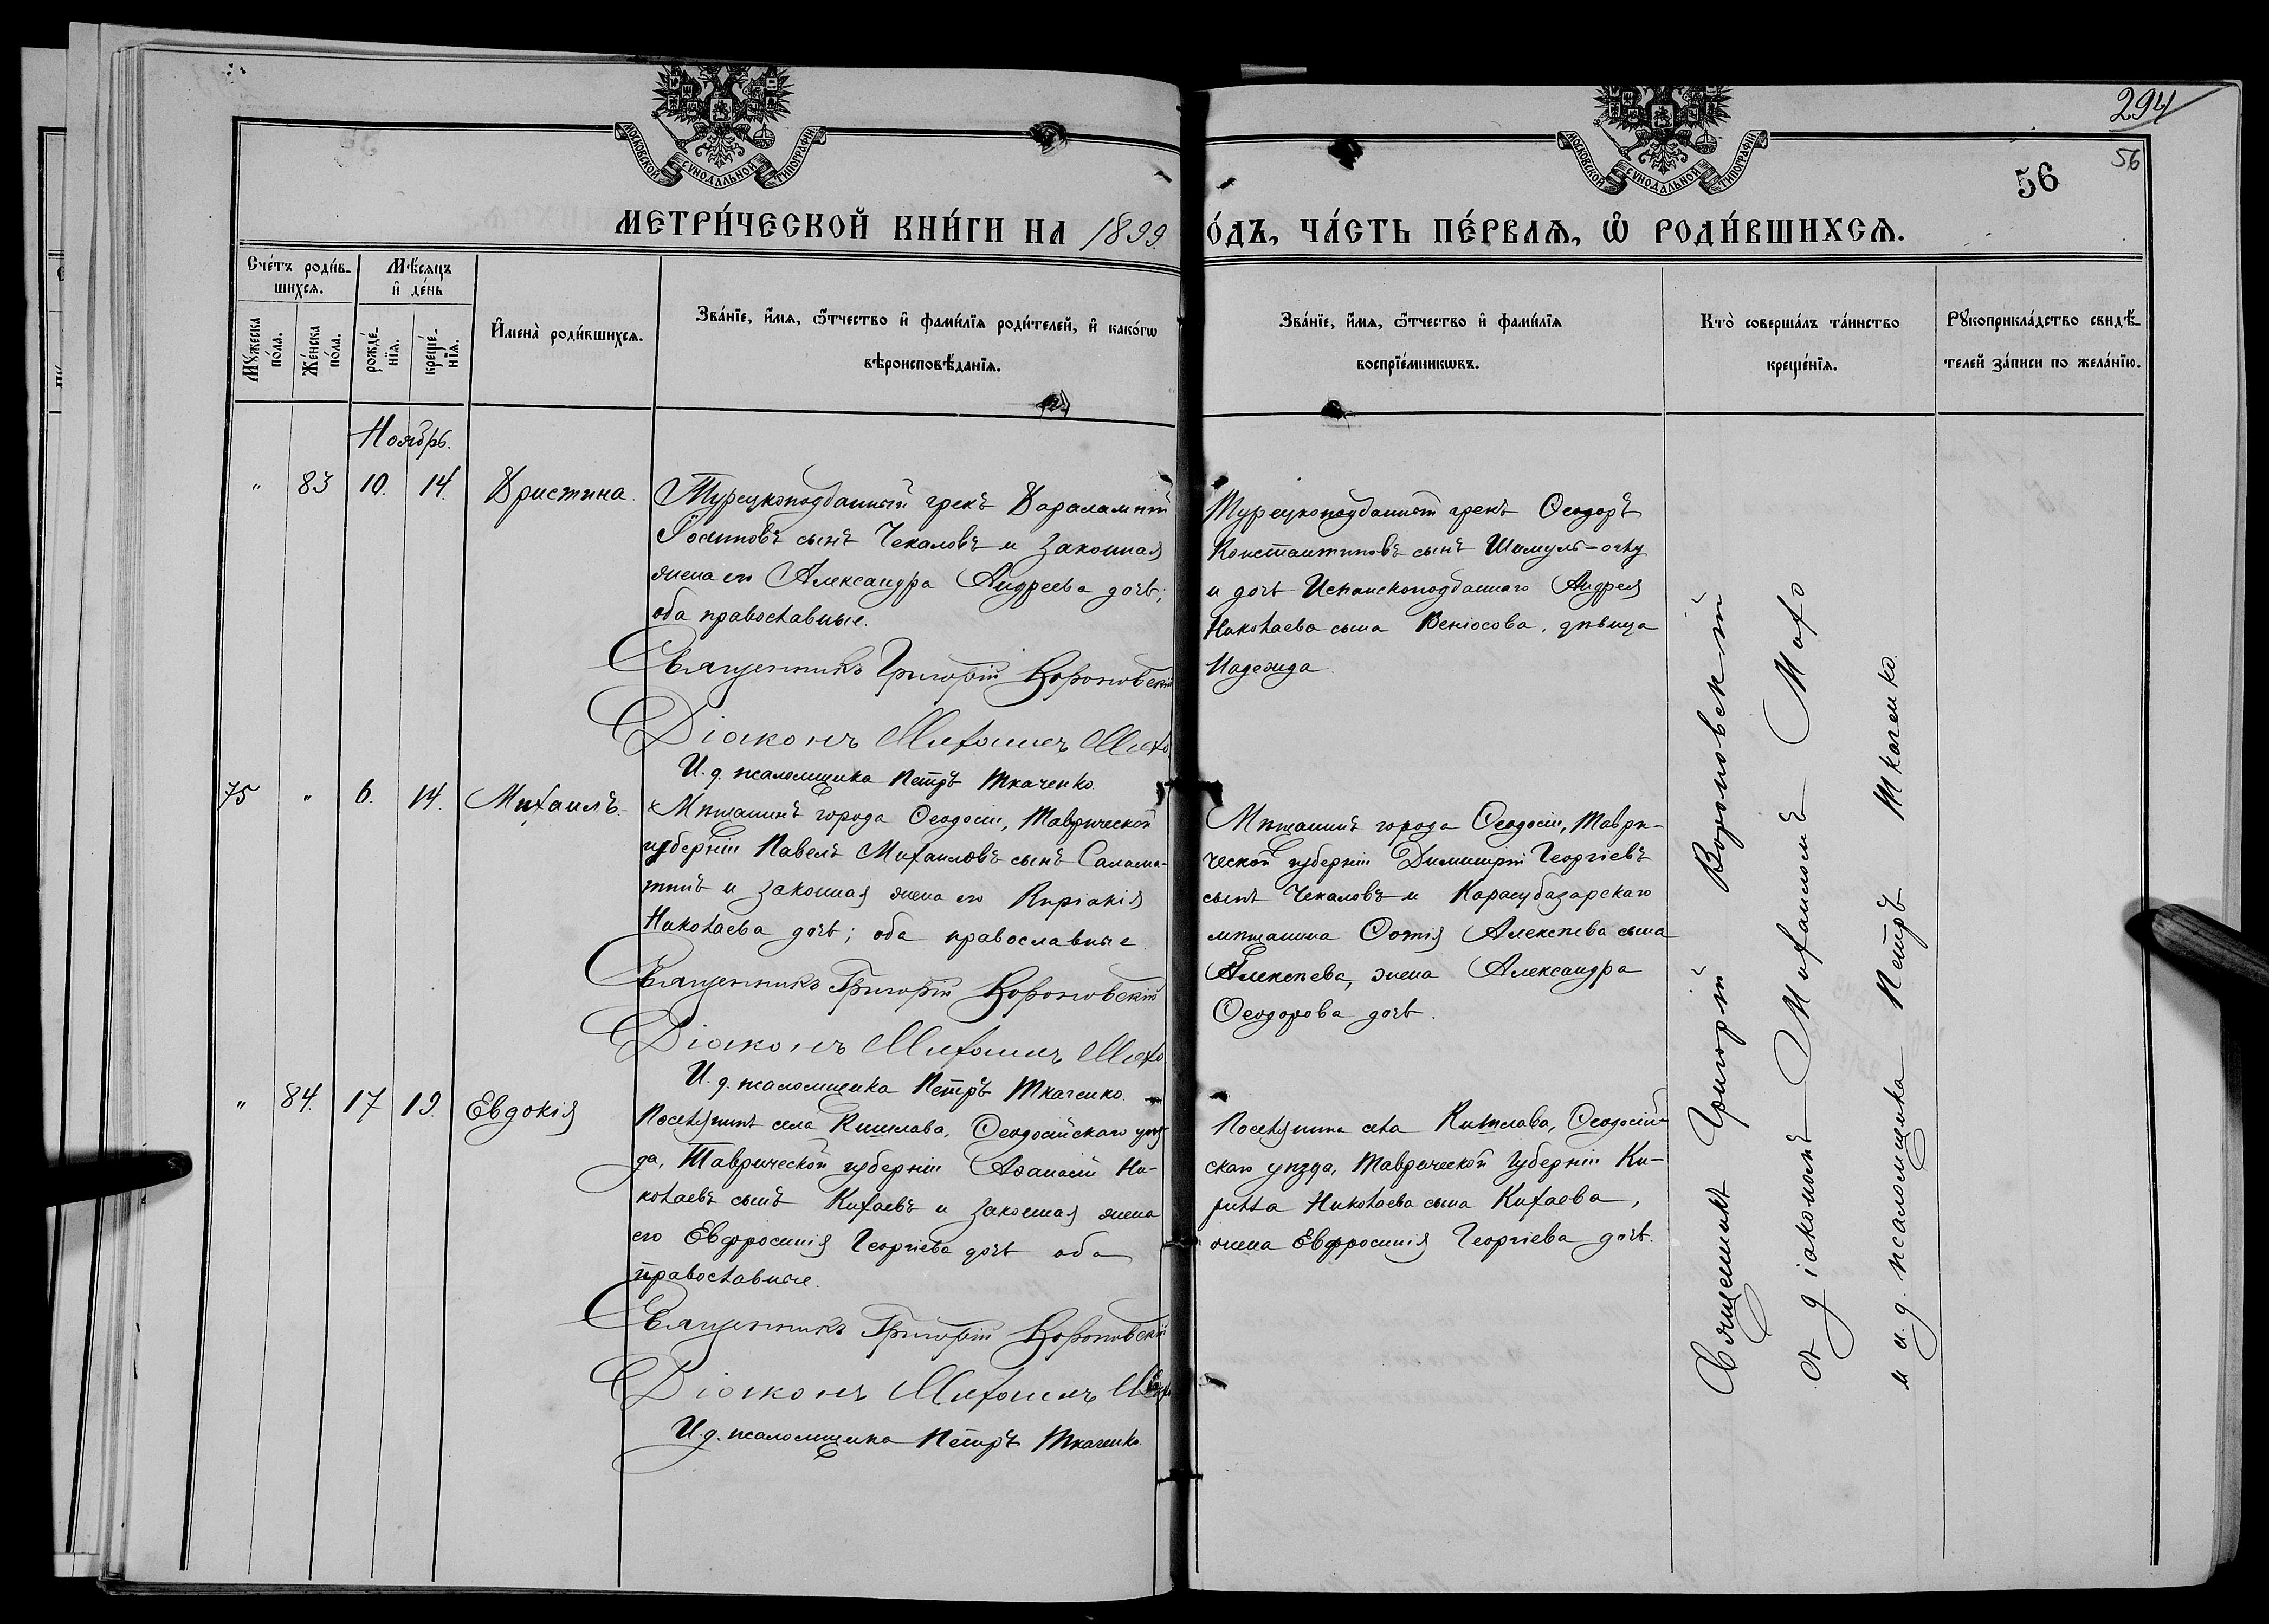 294
56
56
МОСКОВСКОЙ СѴНОДАЛЬНОЙ ТИПОГРАФІИ
МОСКОВСКОЙ СѴНОДАЛЬНОЙ ТИПОГРАФІИ
МЕТРИ́ЧЕСКОЙ КНИ́ГИ НА 1899
О́ДЪ, ЧА́СТЬ ПЕ́РВАѦ, Ѿ РОДИ́ВШИХСѦ.
Сче́тъ роди́в-
шихся.
Мѣ́сяцъ
и҆ де́нь
Мꙋ́жеска
по́ла.
Же́нска
по́ла.
рожде́-
нїя.
креще́-
нїя.
И҆мена̀ роди́вшихся.
Зва́нїе, и҆́мя, ѻ҆́тчество и҆ фами́лїя роди́телей, и҆ како́гѡ
вѣроисповѣ́данїя.
Зва́нїе, и҆́мя, ѻ҆́тчество и҆ фами́лїя
воспрїе́мникѡвъ.
Кто̀ соверша́лъ та́инство
креще́нїя.
Рꙋкоприкла́дство свидѣ́-
телей за́писи по жела́нїю.
Ноябрь.
" 83 10. 14. Христина.
Турецкоподданный грекъ Харалампій
Іосифовъ сынъ Чекаловъ и законная
жена его Александра Андреева дочь;
оба православные.
Священникъ Григорій Вороновскій
Діаконъ Михаилъ Махо
И. д. псаломщика Петръ Ткаченко
Турецкоподданный грекъ Ѳеодоръ
Константиновъ сынъ Шамуль-оглу
и дочь Испанскоподданнаго Андрея
Николаева сына Веніосова, дѣвица
Надежда.
75 " 6. 14. Михаилъ.
Мѣщанинъ города Ѳеодосіи, Таврической
губерніи Павелъ Михаиловъ сынъ Салама-
тинъ и законная жена его Киріакія
Николаева дочь; оба православные.
Священникъ Григорій Вороновскій
Діаконъ Михаилъ Махо
И. д. псаломщика Петръ Ткаченко.
Мѣщанинъ города Ѳеодосіи, Таври-
ческой губерніи Димитрій Георгіевъ
сынъ Чекаловъ и Карасубазарскаго
мѣщанина Фотія Алексѣева сына
Алексѣева, жена Александра
Ѳеодорова дочь.
" 84. 17 19. Евдокія
Поселянинъ села Кишлава, Ѳеодосійскаго уѣз-
да, Таврической губерніи Аѳанасій Ни-
колаевъ сынъ Кихаевъ и законная жена
его Евфросинія Георгіева дочь оба
православные.
Священникъ Григорій Вороновскій
Діаконъ Михаилъ
И. д. псаломщика Петръ Ткаченко.
Поселянина села Кишлава, Ѳеодосій-
скаго уѣзда, Таврической губерніи Ки-
рилла Николаева сына Кихаева,
жена Евфросинія Георгіева дочь.
Священникъ Григорій Вороновскій
съ діакономъ Михаиломъ Махо
и и. д. псаломщика Петръ Ткаченко.